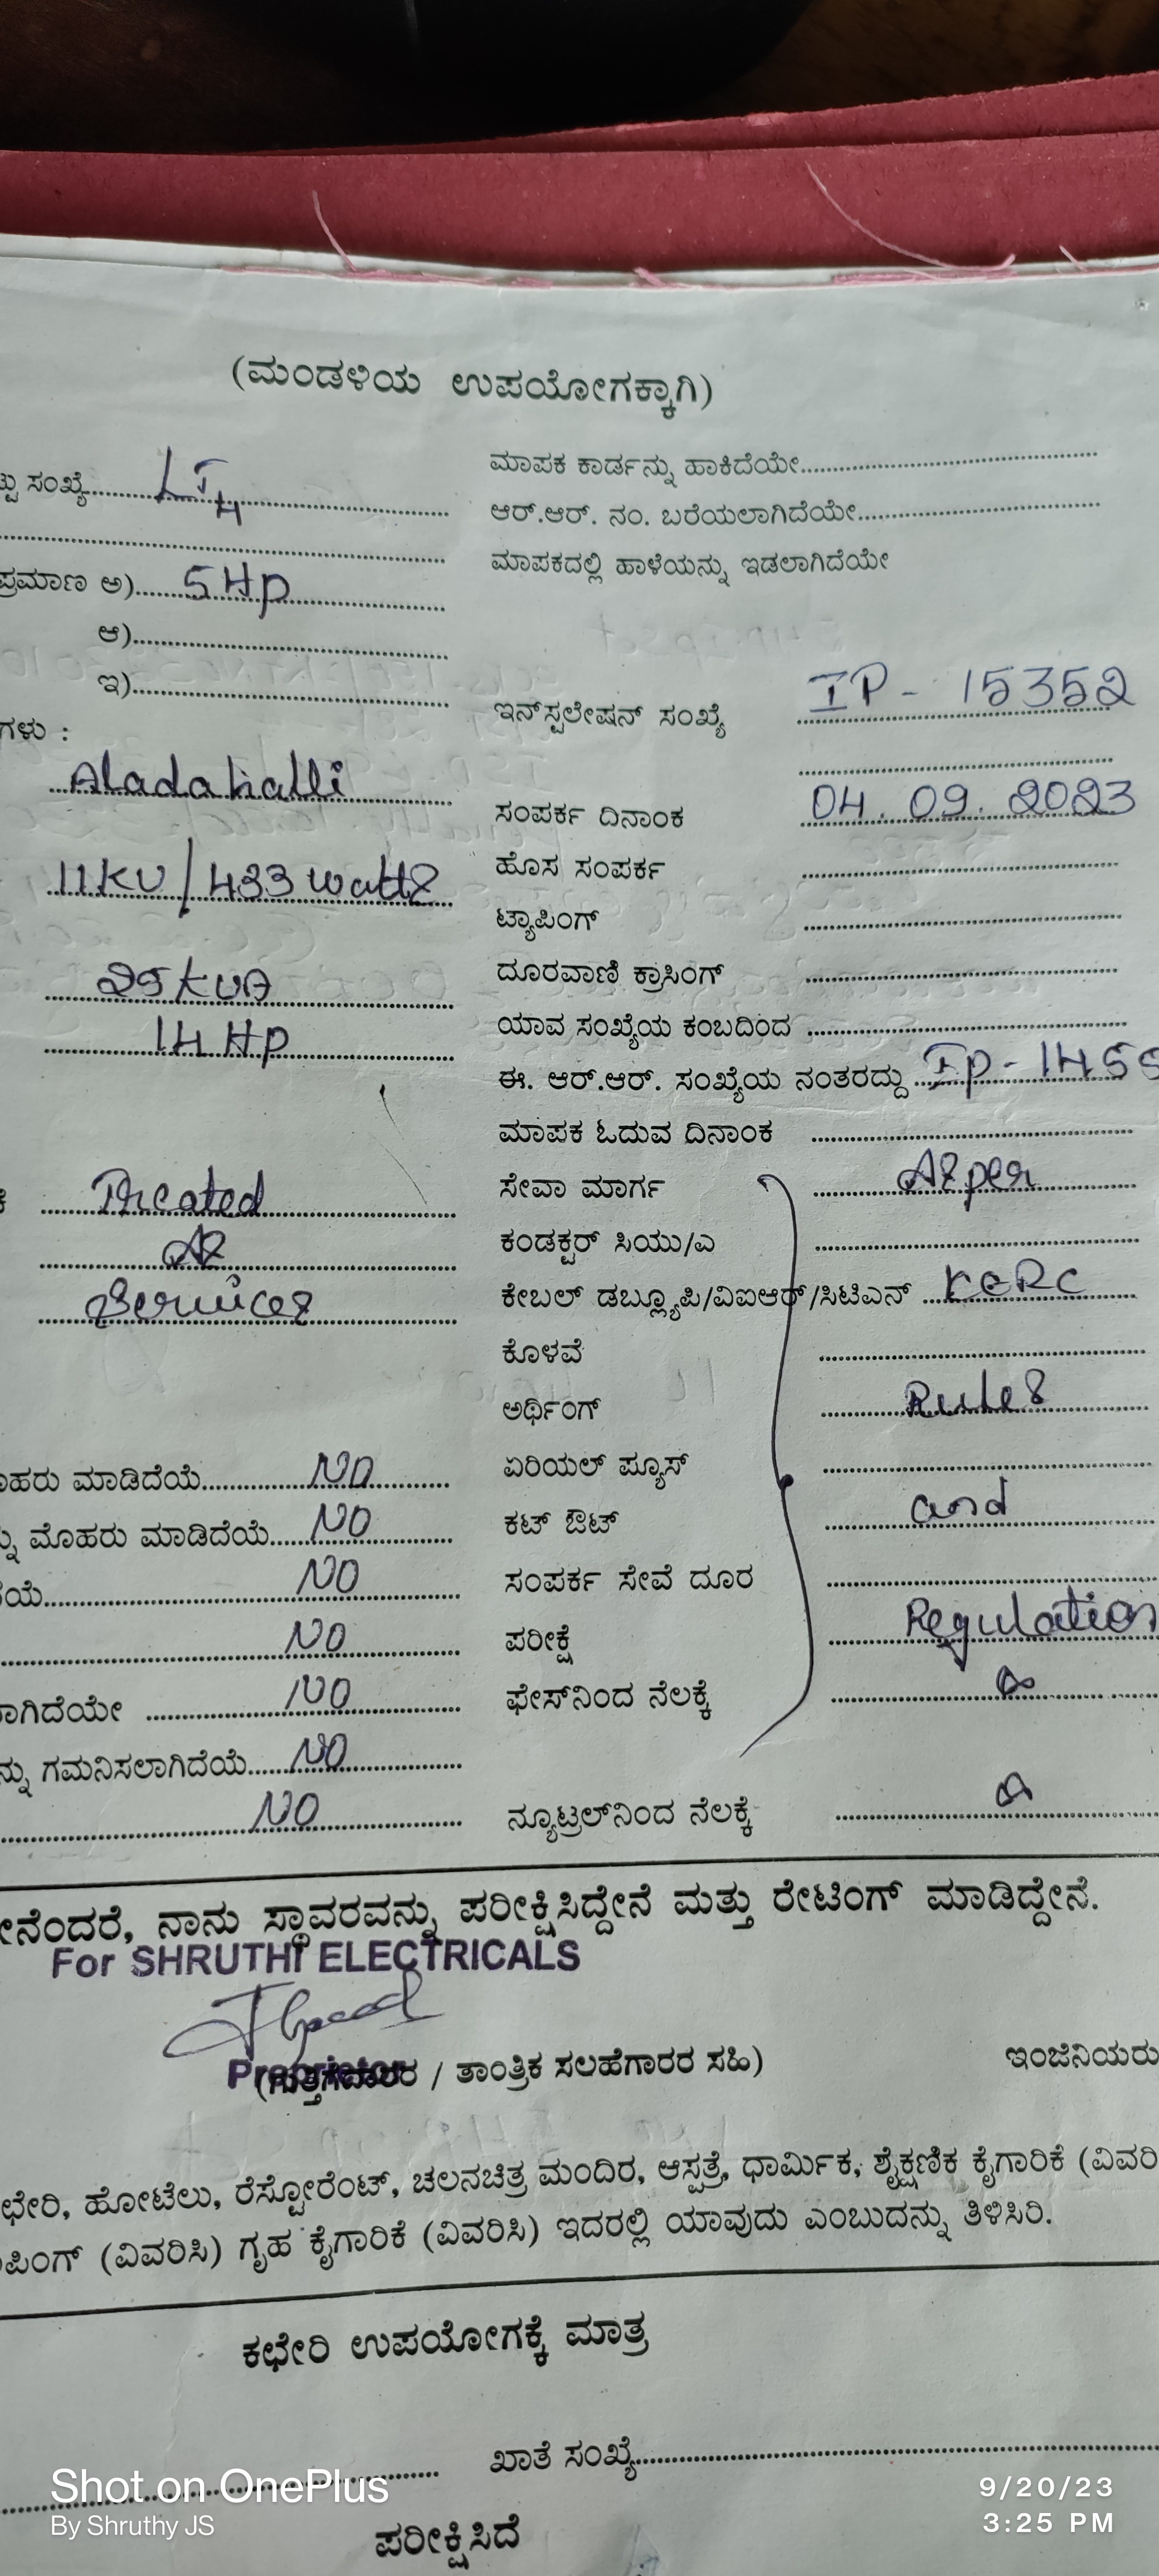 (ಮಂಡಳಿಯ ಉಪಯೋಗಕ್ಕಾಗಿ)
ಟ್ಟು ಸಂಖ್ಯೆ LT4
ಪ್ರಮಾಣ ಅ) 5Hp
ಆ)
ಇ)
ಗಳು :
Aladahalli
11KV/433 watts
25 KVA
14 Hp
Treated
As
Services
ೊಹರು ಮಾಡಿದೆಯೆ NO
ನ್ನು ಮೊಹರು ಮಾಡಿದೆಯೆ NO
ಯೆ NO
NO
ಾಗಿದೆಯೇ NO
ನ್ನು ಗಮನಿಸಲಾಗಿದೆಯೆ NO
NO
ಮಾಪಕ ಕಾರ್ಡನ್ನು ಹಾಕಿದೆಯೇ
ಆರ್.ಆರ್. ನಂ. ಬರೆಯಲಾಗಿದೆಯೇ
ಮಾಪಕದಲ್ಲಿ ಹಾಳೆಯನ್ನು ಇಡಲಾಗಿದೆಯೇ
ಇನ್‌ಸ್ಟಲೇಷನ್ ಸಂಖ್ಯೆ IP - 15352
ಸಂಪರ್ಕ ದಿನಾಂಕ 04. 09. 2023
ಹೊಸ ಸಂಪರ್ಕ
ಟ್ಯಾಪಿಂಗ್
ದೂರವಾಣಿ ಕ್ರಾಸಿಂಗ್
ಯಾವ ಸಂಖ್ಯೆಯ ಕಂಬದಿಂದ
ಈ. ಆರ್.ಆರ್. ಸಂಖ್ಯೆಯ ನಂತರದ್ದು Ip - 145
ಮಾಪಕ ಓದುವ ದಿನಾಂಕ
ಸೇವಾ ಮಾರ್ಗ Asper
ಕಂಡಕ್ಟರ್ ಸಿಯು/ಎ
ಕೇಬಲ್ ಡಬ್ಲ್ಯೂಪಿ/ವಿಐಆರ್/ಸಿಟಿಎನ್ KERC
ಕೊಳವೆ
ಅರ್ಥಿಂಗ್ Rules
ಏರಿಯಲ್ ಪ್ಯೂಸ್
ಕಟ್ ಔಟ್ and
ಸಂಪರ್ಕ ಸೇವೆ ದೂರ
ಪರೀಕ್ಷೆ Regulation
ಫೇಸ್‌ನಿಂದ ನೆಲಕ್ಕೆ
ನ್ಯೂಟ್ರಲ್‌ನಿಂದ ನೆಲಕ್ಕೆ
ೇನೆಂದರೆ, ನಾನು ಸ್ಥಾವರವನ್ನು ಪರೀಕ್ಷಿಸಿದ್ದೇನೆ ಮತ್ತು ರೇಟಿಂಗ್ ಮಾಡಿದ್ದೇನೆ.
For SHRUTHI ELECTRICALS
Proprietor
(ಗುತ್ತಿಗೆದಾರರ / ತಾಂತ್ರಿಕ ಸಲಹೆಗಾರರ ಸಹಿ) ಇಂಜಿನಿಯರು
ಛೇರಿ, ಹೋಟೆಲು, ರೆಸ್ಟೋರೆಂಟ್, ಚಲನಚಿತ್ರ ಮಂದಿರ, ಆಸ್ಪತ್ರೆ, ಧಾರ್ಮಿಕ, ಶೈಕ್ಷಣಿಕ ಕೈಗಾರಿಕೆ (ವಿವರಿ
ಪಿಂಗ್ (ವಿವರಿಸಿ) ಗೃಹ ಕೈಗಾರಿಕೆ (ವಿವರಿಸಿ) ಇದರಲ್ಲಿ ಯಾವುದು ಎಂಬುದನ್ನು ತಿಳಿಸಿರಿ.
ಕಛೇರಿ ಉಪಯೋಗಕ್ಕೆ ಮಾತ್ರ
ಖಾತೆ ಸಂಖ್ಯೆ
ಪರೀಕ್ಷಿಸಿದೆ
Shot on OnePlus
By Shruthy JS
9/20/23
3:25 PM